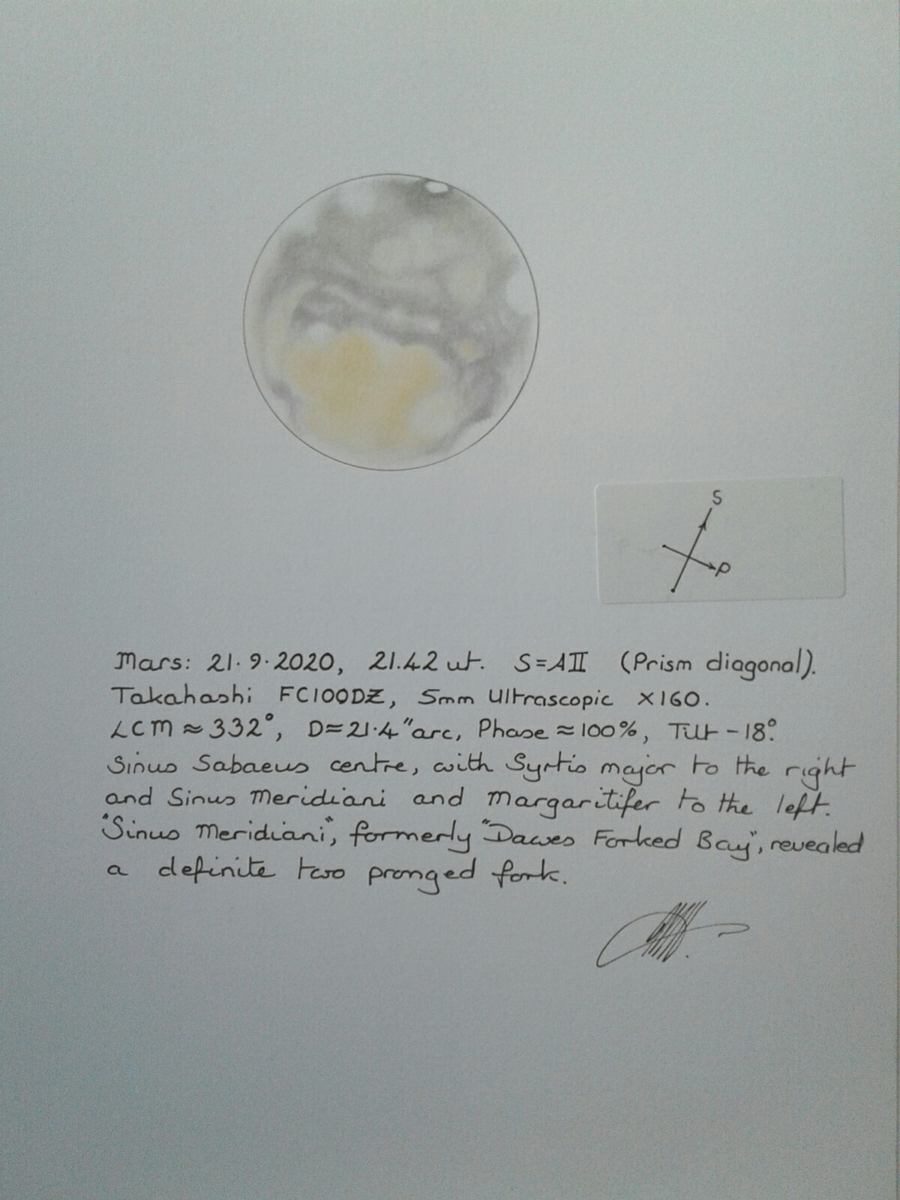 S
P
Mars: 21.9.2020, 21.42 ut. S=AII (Prism diagonal).
Takahashi FC100DZ, 5mm Ultrascopic x160.
LCM ≈ 332°, D=21.4"arc, Phase ≈ 100%, Tilt -18°.
Sinus Sabaeus centre, with Syrtis major to the right
and Sinus Meridiani and Margaritifer to the left.
"Sinus Meridiani", formerly "Dawes Forked Bay", revealed
a definite two pronged fork.